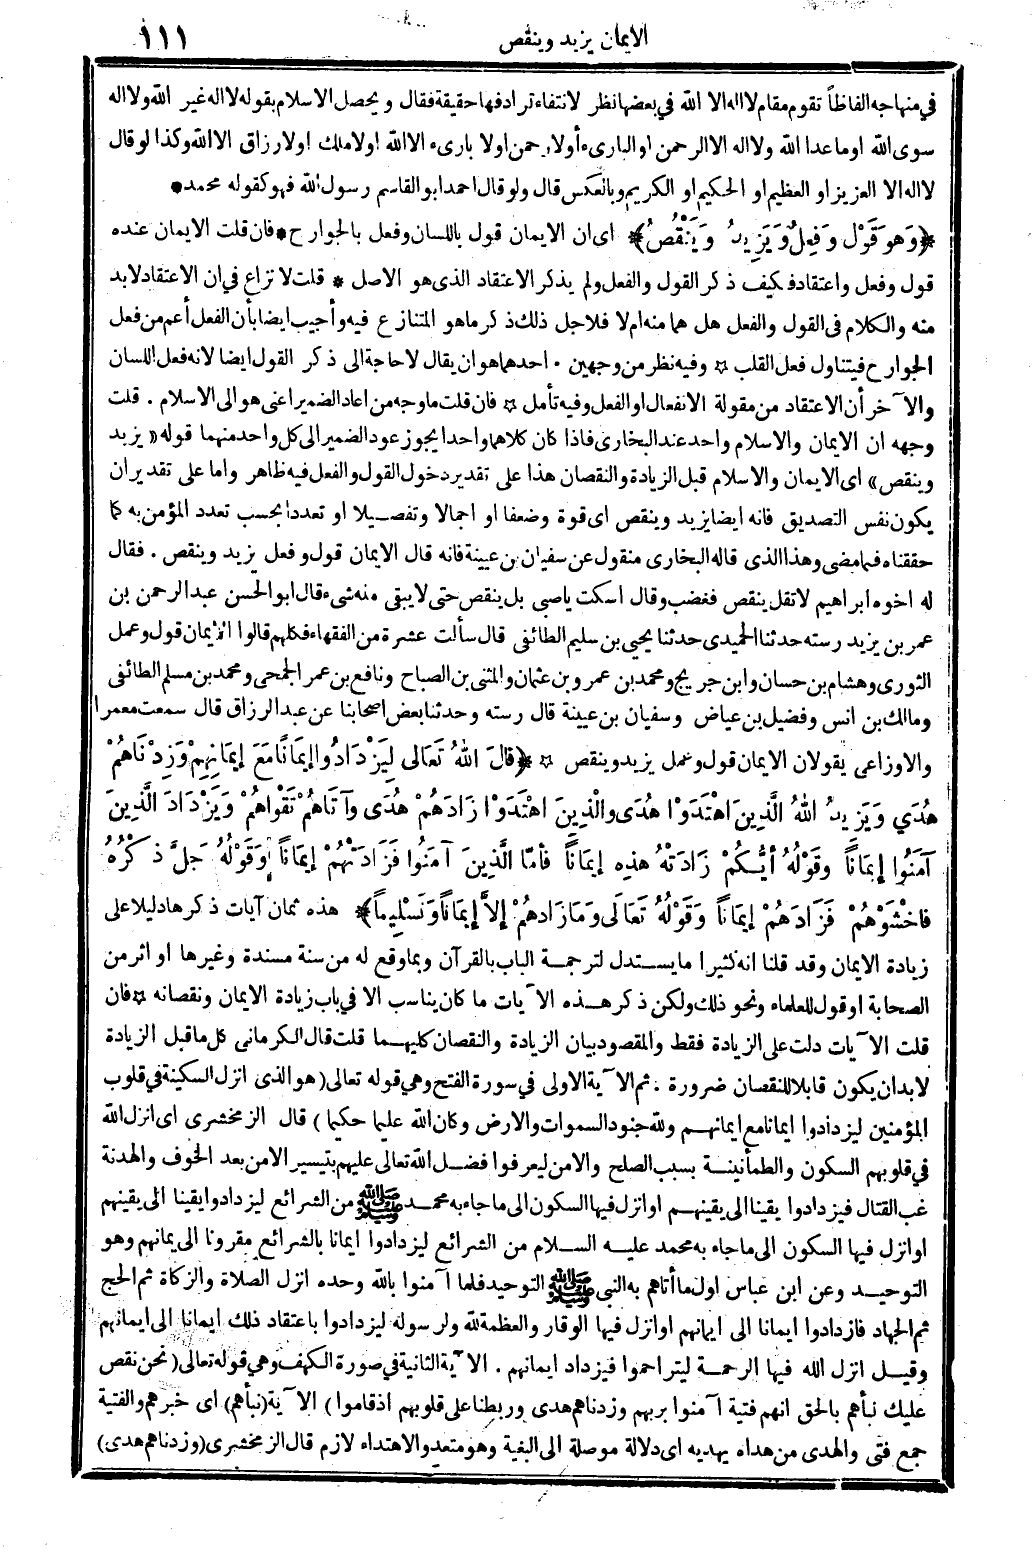 الايمان يزيد وينقص
١١١
في منهاجه الفاظاً تقوم مقام لا اله الا الله في بعضها نظر لانتفاء ترادفها حقيقة فقال ويحصل الاسلام بقوله لا اله غير الله ولا اله
سوى الله او ما عدا الله ولا اله الا الرحمن او البارىء أولا رحمن اولا بارىء الا الله اولا ملك اولا رزاق الا الله وكذا لو قال
لا اله الا العزيز او العظيم او الحكيم او الكريم وبالعكس قال ولو قال احمد ابو القاسم رسول الله فهو كقوله محمد *
﴿وَهوَ قَوْلٌ وَفِعِلٌ وَيَزِيدُ وَيَنْقُصُ﴾ اى ان الايمان قول باللسان وفعل بالجوارح * فان قلت الايمان عنده
قول وفعل واعتقاد فكيف ذكر القول والفعل ولم يذكر الاعتقاد الذى هو الاصل * قلت لا نزاع في ان الاعتقاد لابد
منه والكلام فى القول والفعل هل هما منه ام لا فلاجل ذلك ذكر ما هو المتنازع فيه وأجيب ايضا بأن الفعل أعم من فعل
الجوارح فيتناول فعل القلب ☆ وفيه نظر من وجهين ٠ احدهما هو ان يقال لا حاجة الى ذكر القول ايضا لانه فعل اللسان
والآخر أن الاعتقاد من مقولة الانفعال او الفعل وفيه تأمل ☆ فان قلت ما وجه من اعاد الضمير اعنى هو الى الاسلام . قلت
وجهه ان الايمان والاسلام واحد عند البخارى فاذا كان كلاهما واحدا يجوز عود الضمير الى كل واحد منهما قوله « يزيد
وينقص » اى الايمان والاسلام قبل الزيادة والنقصان هذا على تقدير دخول القول والفعل فيه ظاهر واما على تقدير ان
يكون نفس التصديق فانه ايضا يزيد وينقص اى قوة وضعفا او اجمالا وتفصيلا او تعددا بحسب تعدد المؤمن به كما
حققناه فيما مضى وهذا الذى قاله البخارى منقول عن سفيان بن عيينة فانه قال الايمان قول وفعل يزيد وينقص . فقال
له اخوه ابراهيم لا تقل ينقص فغضب وقال اسكت ياصبى بل ينقص حتى لا يبقى منه شىء قال ابو الحسن عبد الرحمن بن
عمر بن يزيد رسته حدثنا الحميدى حدثنا يحيى بن سليم الطائفى قال سألت عشرة من الفقهاء فكلهم قالوا الايمان قول وعمل
الثورى وهشام بن حسان وابن جريج ومحمد بن عمرو بن عثمان والمثنى بن الصباح ونافع بن عمر الجمحى ومحمد بن مسلم الطائفى
ومالك بن انس وفضيل بن عياض وسفيان بن عيينة قال رسته وحدثنا بعض اصحابنا عن عبد الرزاق قال سمعت معمرا
والاوزاعى يقولان الايمان قول وعمل يزيد وينقص ☆ ﴿قالَ اللهُ تَعَالى لِيَزْدَادُوا إِيمَانًا مَعَ إِيمَانِهِمْ وَزِدْنَاهُمْ
هُدًي وَيَزِيدُ اللهُ الَّذِينَ اهْتَدَوْا هُدًى والَّذِينَ اهْتَدَوْا زَادَهُمْ هُدًى وآتَاهُمْ تَقْوَاهُمْ وَيَزْدَادَ الَّذِينَ
آمَنُوا إِيمَانًا وقَوْلُهُ أيُّكُمْ زَادَتْهُ هذِهِ إِيمَانًا فأمَّا الَّذِينَ آمَنُوا فَزَادَتْهُمْ إيمَانًا وَقَوْلُهُ جَلَّ ذِكْرُهُ
فاخْشَوْهُمْ فَزَادَهُمْ إِيمَانًا وَقَوْلُهُ تَعَالَى وَمَا زَادهُمْ إِلاَّ إِيمَانًا وَتَسْلِيماً﴾ هذه ثمان آيات ذكرها دليلا على
زيادة الايمان وقد قلنا انه كثيرا ما يستدل لترجمة الباب بالقرآن وبما وقع له من سنة مسندة وغيرها او اثر من
الصحابة او قول للعلماء ونحو ذلك ولكن ذكر هذه الآيات ما كان يناسب الا في باب زيادة الايمان ونقصانه ☆ فان
قلت الآيات دلت على الزيادة فقط والمقصود بيان الزيادة والنقصان كليهما قلت قال الكرمانى كل ما قبل الزيادة
لابد ان يكون قابلا للنقصان ضرورة . ثم الآية الاولى في سورة الفتح وهي قوله تعالى ( هو الذى انزل السكينة في قلوب
المؤمنين ليزدادوا ايمانا مع ايمانهم ولله جنود السموات والارض وكان الله عليما حكيما ) قال الزمخشرى اى انزل الله
في قلوبهم السكون والطمأنينة بسبب الصلح والامن ليعرفوا فضل الله تعالى عليهم بتيسير الامن بعد الخوف والهدنة
غب القتال فيزدادوا يقينا الى يقينهم او انزل فيها السكون الى ما جاء به محمد ﷺ من الشرائع ليزدادوا يقينا الى يقينهم
او انزل فيها السكون الى ما جاء به محمد عليه السلام من الشرائع ليزدادوا ايمانا بالشرائع مقرونا الى ايمانهم وهو
التوحيد وعن ابن عباس اول ما أتاهم به النبي ﷺ التوحيد فلما آمنوا بالله وحده انزل الصلاة والزكاة ثم الحج
ثم الجهاد فازدادوا ايمانا الى ايمانهم او انزل فيها الوقار والعظمة لله ولرسوله ليزدادوا باعتقاد ذلك ايمانا الى ايمانهم
وقيل انزل الله فيها الرحمة ليتراحموا فيزداد ايمانهم . الآية الثانية في صورة الكهف وهي قوله تعالى ( نحن نقص
عليك نبأهم بالحق انهم فتية آمنوا بربهم وزدناهم هدى وربطنا على قلوبهم اذ قاموا ) الآية (نبأهم) اى خبرهم والفتية
جمع فتى والهدى من هداه يهديه اى دلالة موصلة الى البغية وهو متعد والاهتداء لازم قال الزمخشرى (وزدناهم هدى)